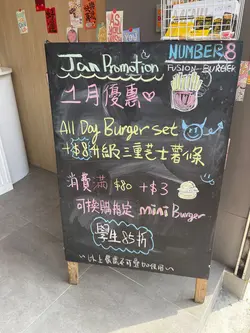 NUMBER8
FUSION BURGER
Jan Promotion
1月優惠
All Day Burger set
+$8升級三重芝士薯條
消費滿 $80 +$3
可換購指定 mini Burger
學生85折